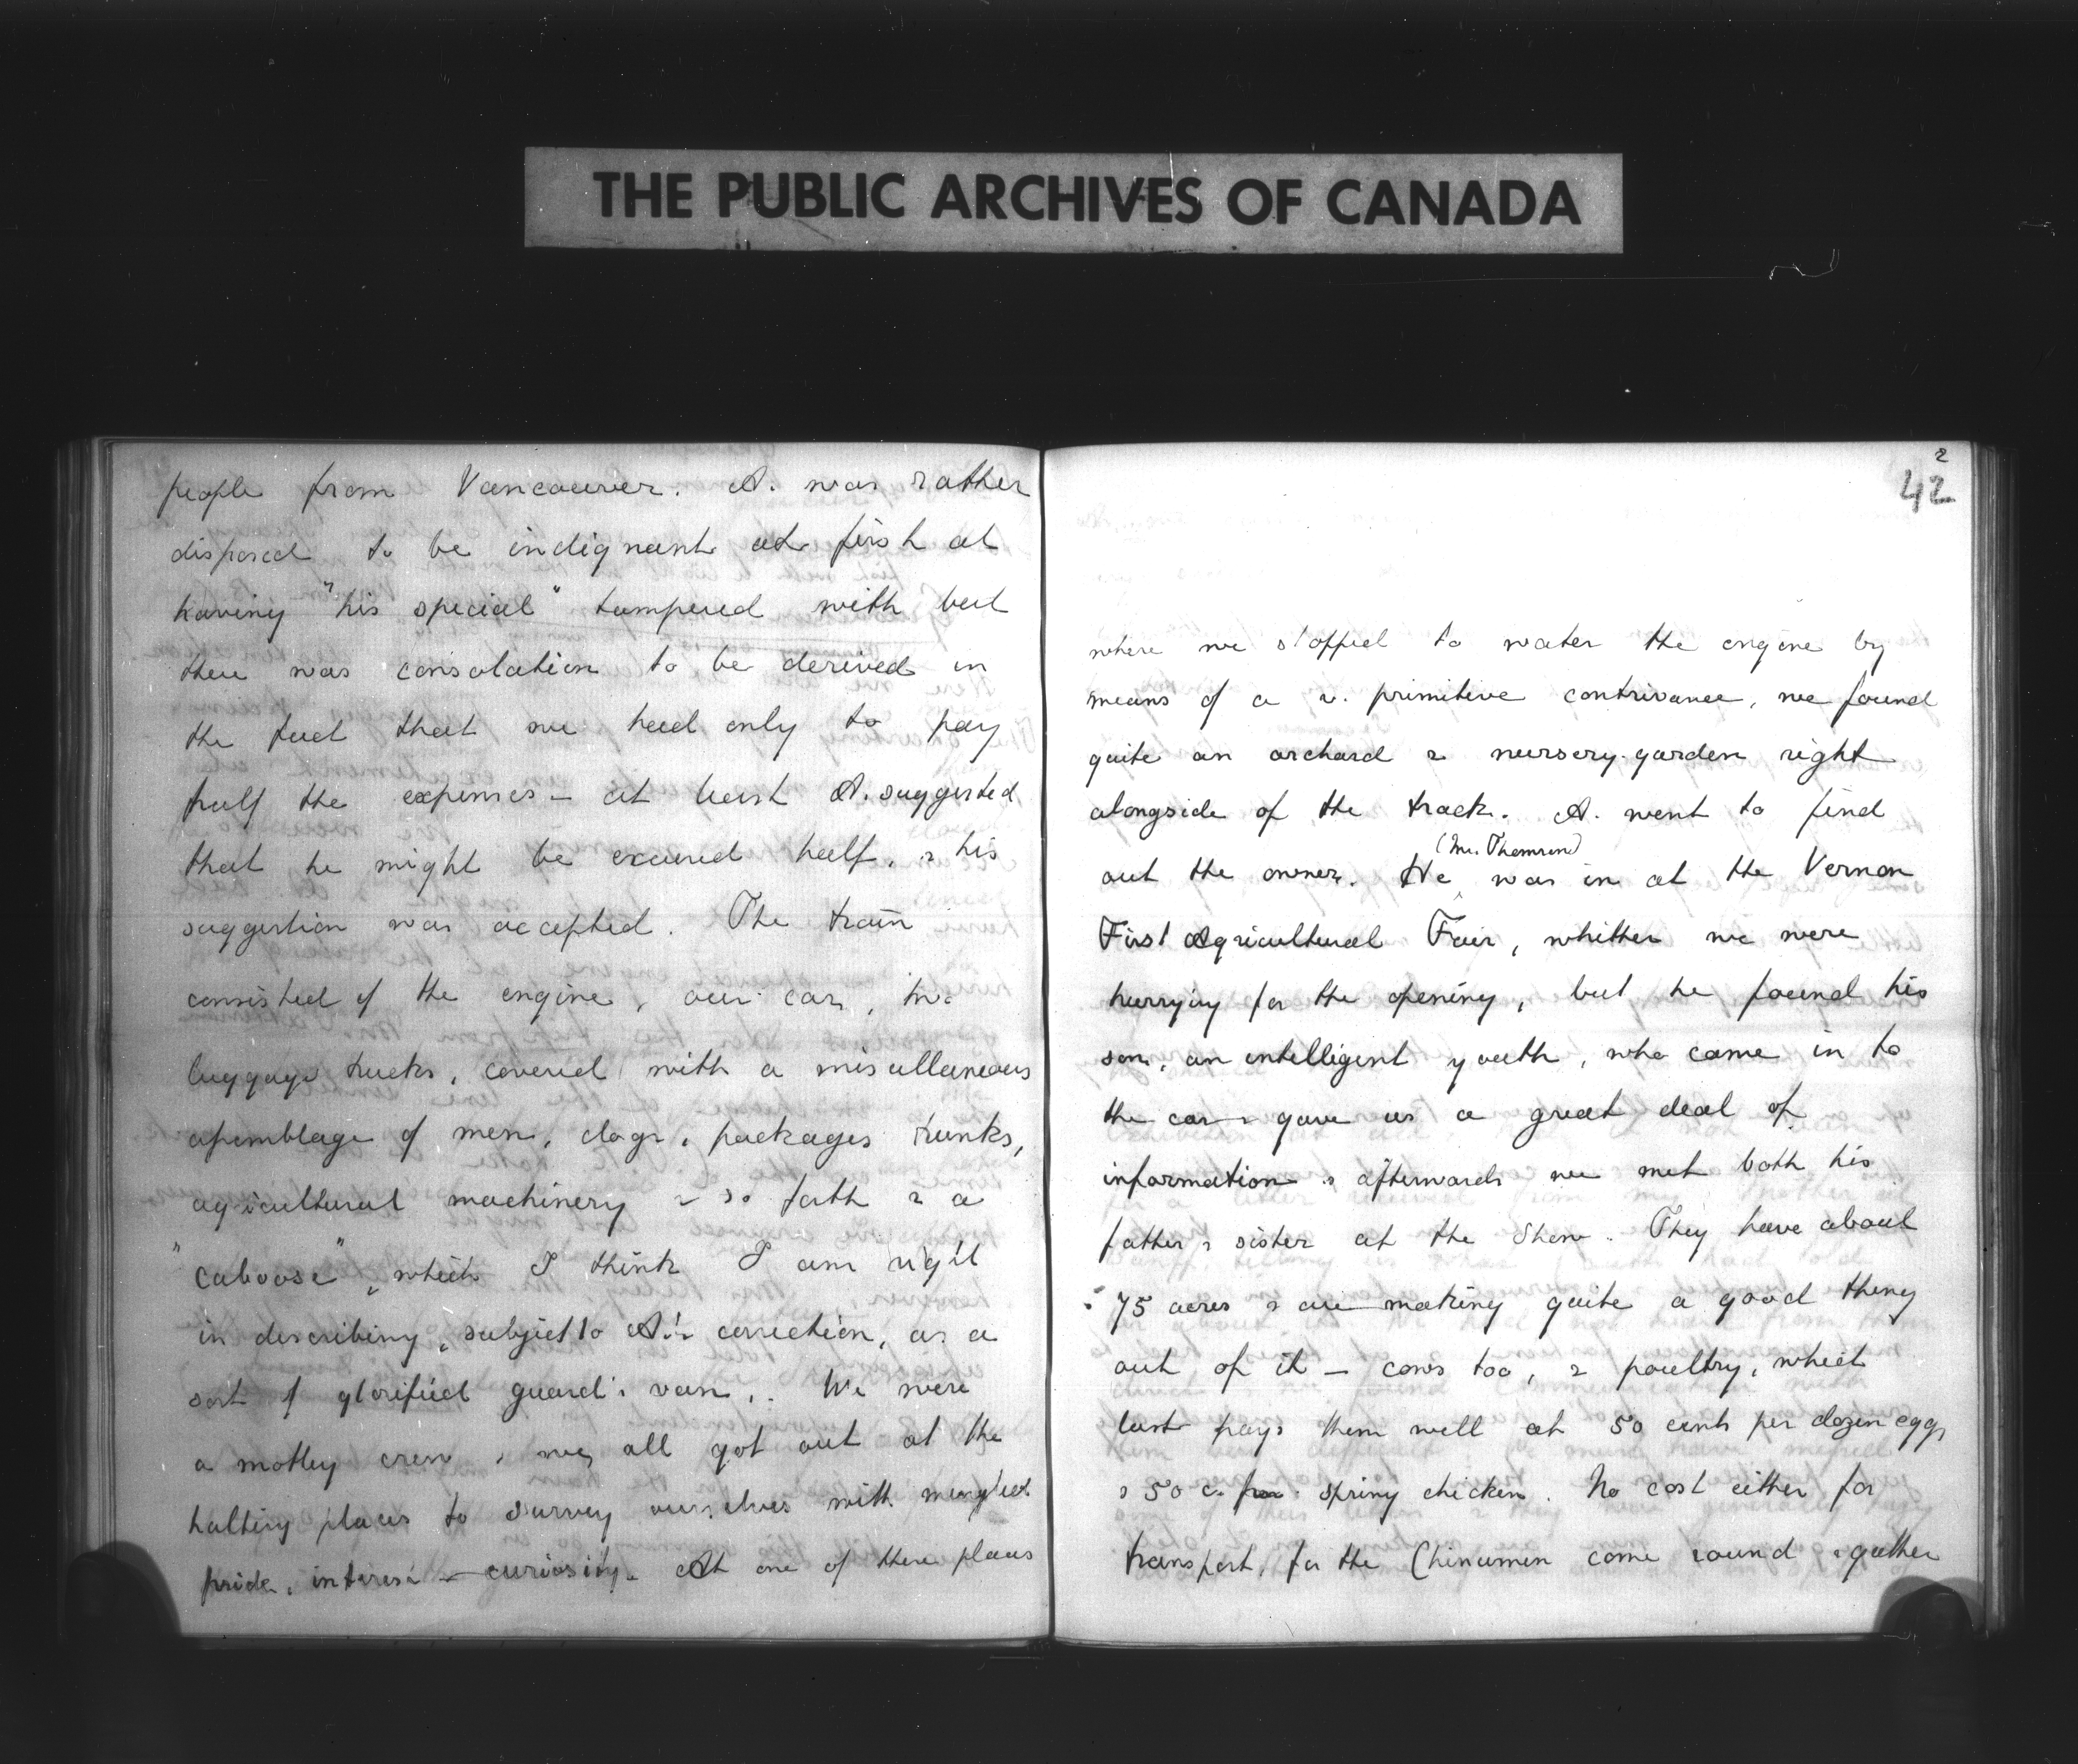 THE PUBLIC ARCHIVES OF CANADA
people from Vancouver. A. was rather
disposed to be indignant at first at
having "his special" tampered with but
there was consolation to be derived in
the fact that we had only to pay
half the expenses – at least A. suggested
that he might be excused half, & his
suggestion was accepted. The train
consisted of the engine, our car, two
luggage trucks, covered with a miscellaneous
assemblage of men, dogs, packages trunks,
agricultural machinery & so forth & a
"caboose", which I think I am right
in describing, subject to A's correction, as a
sort of glorified guard's van. We were
a motley crew & we all got out at the
halting places to survey ourselves with mingled
pride, interest & curiosity. At one of these places
2
42
where we stopped to water the engine by
means of a v. primitive contrivance, we found
quite an orchard & nursery-garden right
alongside of the track. A. went to find
(Mr. Thomson)
out the owner. He was in at the Vernon
First Agricultural Fair, whither we were
hurrying for the opening, but he found his
son, an intelligent youth, who came in to
the car & gave us a great deal of
information & afterwards we met both his
father & sister at the Show. They have about
75 acres & are making quite a good thing
out of it – cows too, & poultry, which
last pays them well at 50 cents per dozen eggs
& 50 c. per spring chicken. No cost either for
transport, for the Chinamen come round & gather